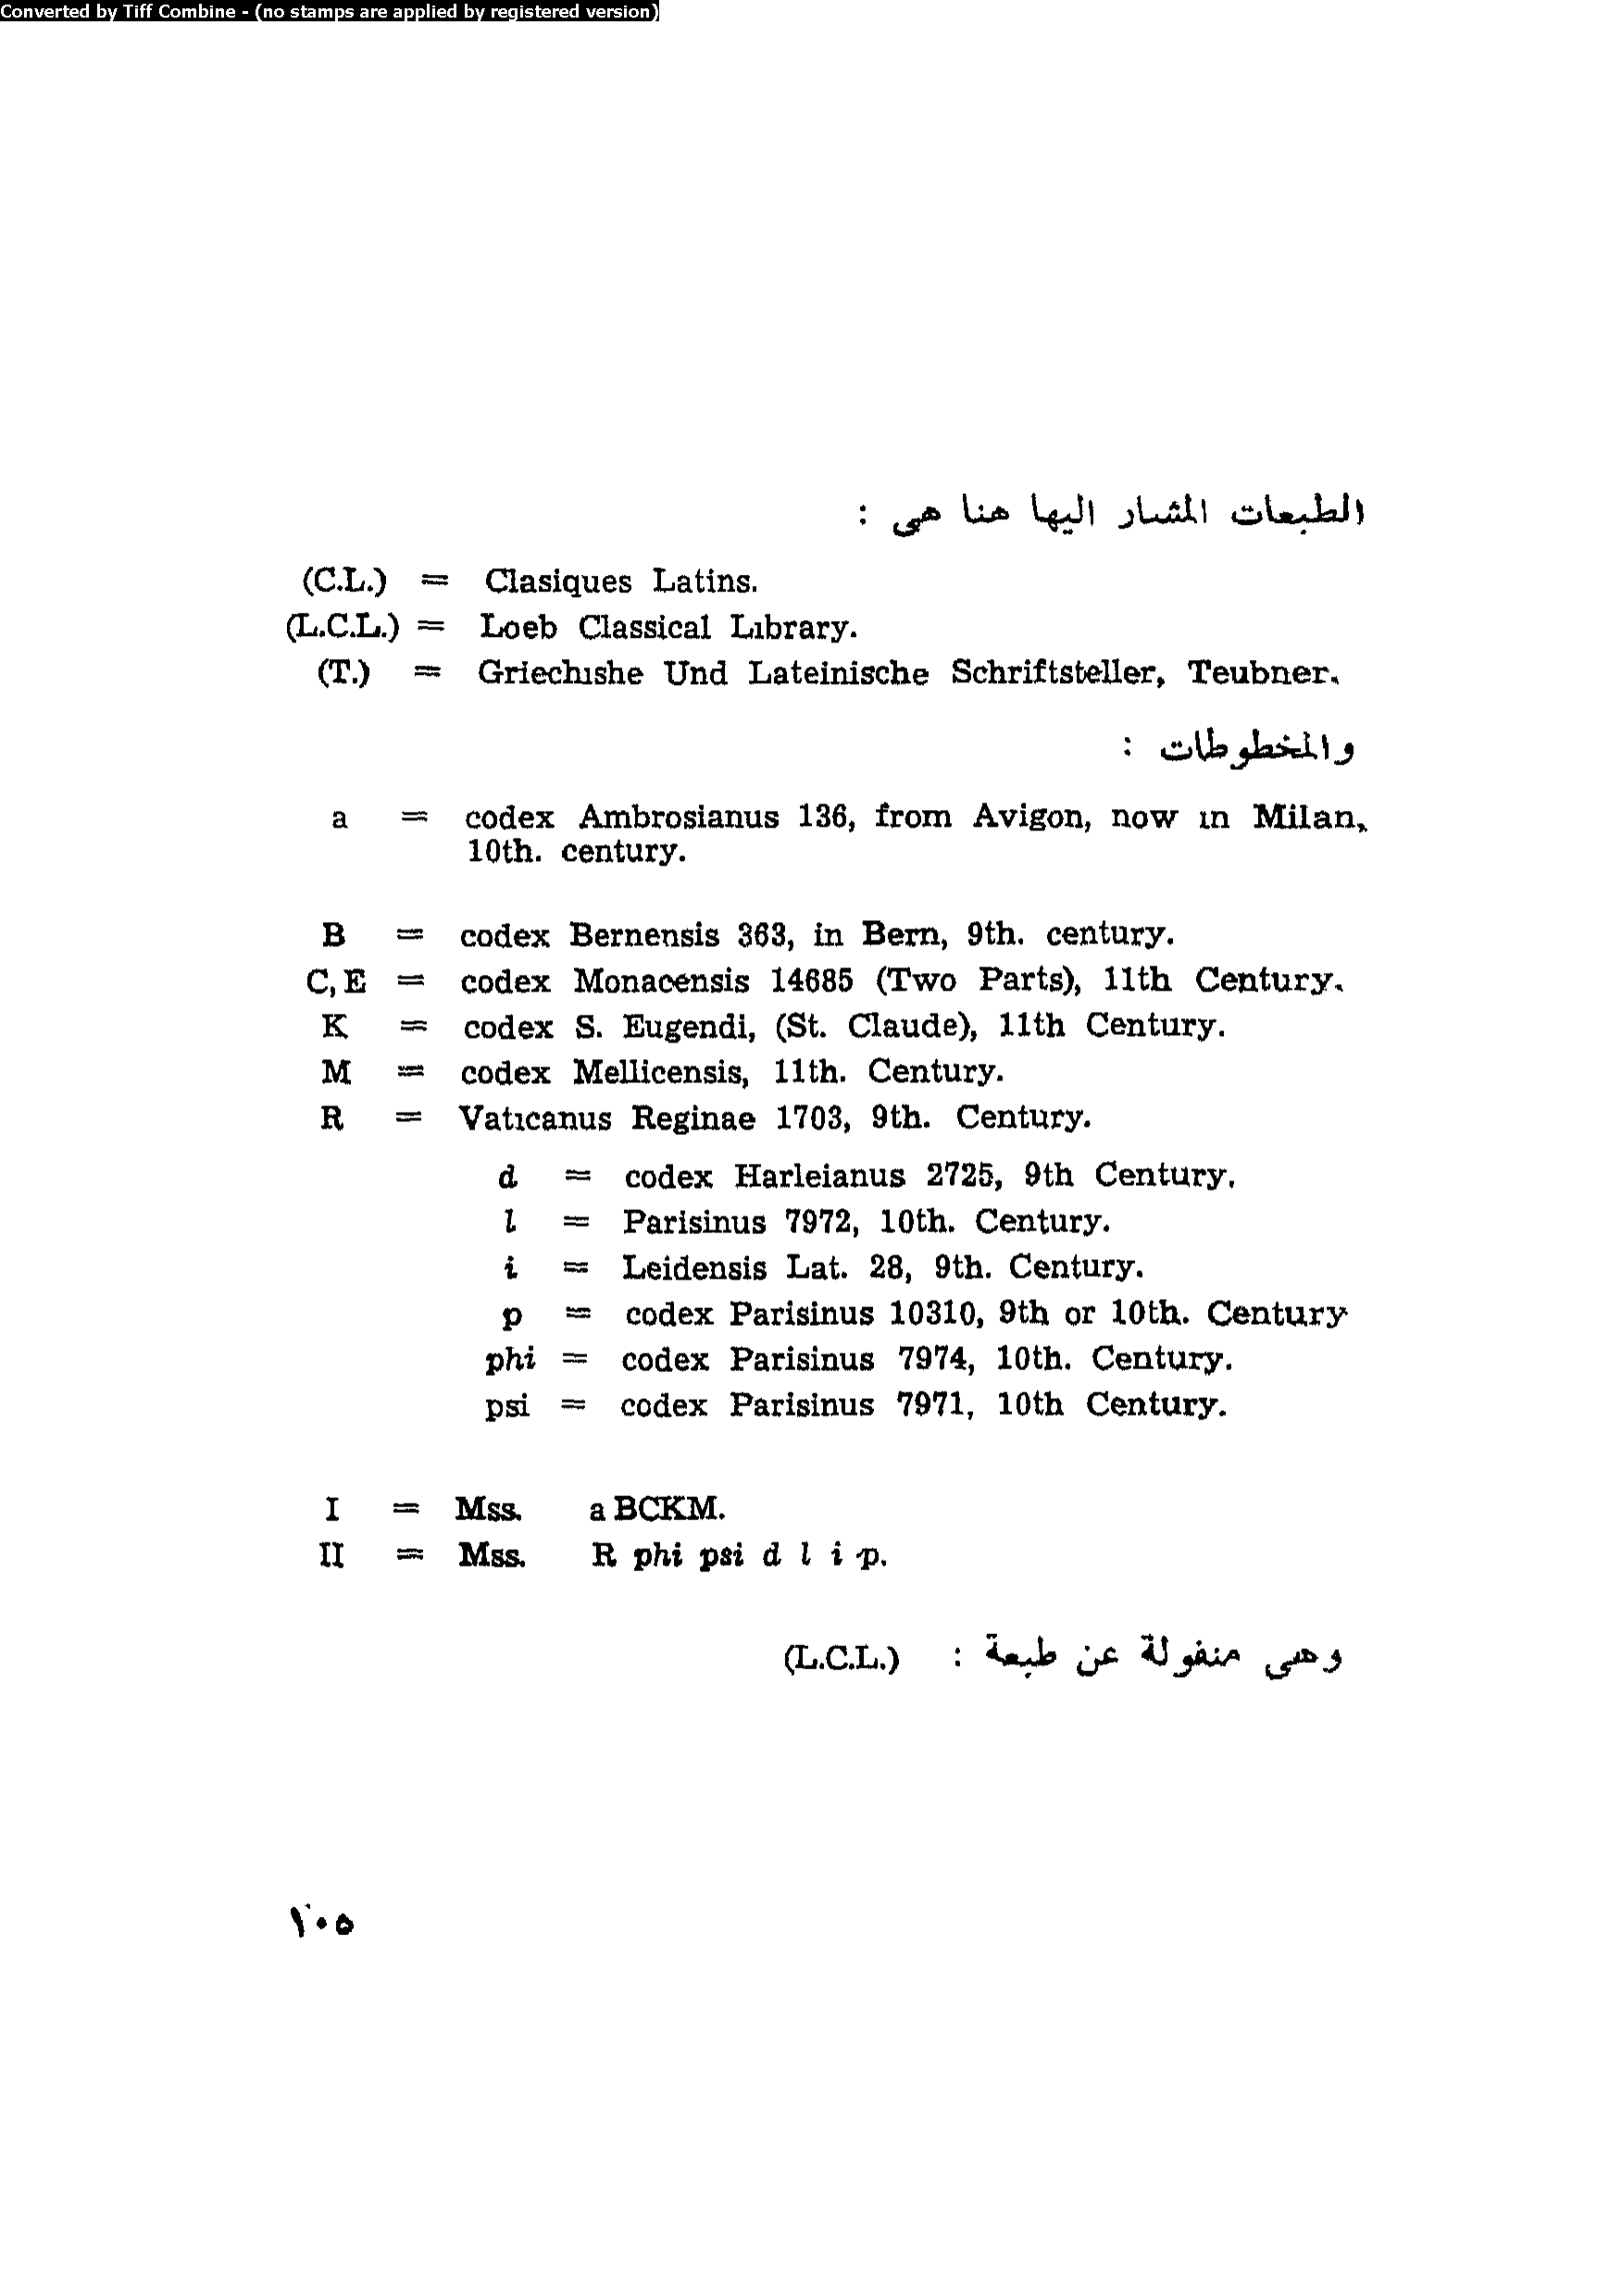 Converted by Tiff Combine - (no stamps are applied by registered version)
الطبعات المشار اليها هنا هى :
(C.L.) = Clasiques Latins.
(L.C.L.) = Loeb Classical Library.
(T.) = Griechishe Und Lateinische Schriftsteller, Teubner.
والمخطوطات :
a = codex Ambrosianus 136, from Avigon, now in Milan,
10th. century.
B = codex Bernensis 363, in Bern, 9th. century.
C, E = codex Monacensis 14685 (Two Parts), 11th Century.
K = codex S. Eugendi, (St. Claude), 11th Century.
M = codex Mellicensis, 11th. Century.
R = Vaticanus Reginae 1703, 9th. Century.
d = codex Harleianus 2725, 9th Century.
l = Parisinus 7972, 10th. Century.
i = Leidensis Lat. 28, 9th. Century.
p = codex Parisinus 10310, 9th or 10th. Century
phi = codex Parisinus 7974, 10th. Century.
psi = codex Parisinus 7971, 10th Century.
I = Mss. a BCKM.
II = Mss. R phi psi d l i p.
وهى منقولة عن طبعة : (L.C.L.)
١٠٥